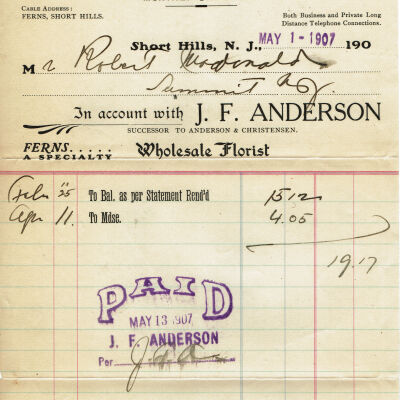 CABLE ADDRESS:
FERNS, SHORT HILLS.
Both Business and Private Long
Distance Telephone Connections.
Short Hills, N. J., MAY 1 - 1907 190
Mr Robert McDonald
Summit N.J.
In account with J. F. ANDERSON
SUCCESSOR TO ANDERSON & CHRISTENSEN.
FERNS.....
A SPECIALTY
Wholesale Florist
Feb 25 To Bal. as per Statement Rend'd 15 12
Apr 11. To Mdse. 4.05
19.17
PAID
MAY 13 1907
J. F. ANDERSON
Per J.F.A.